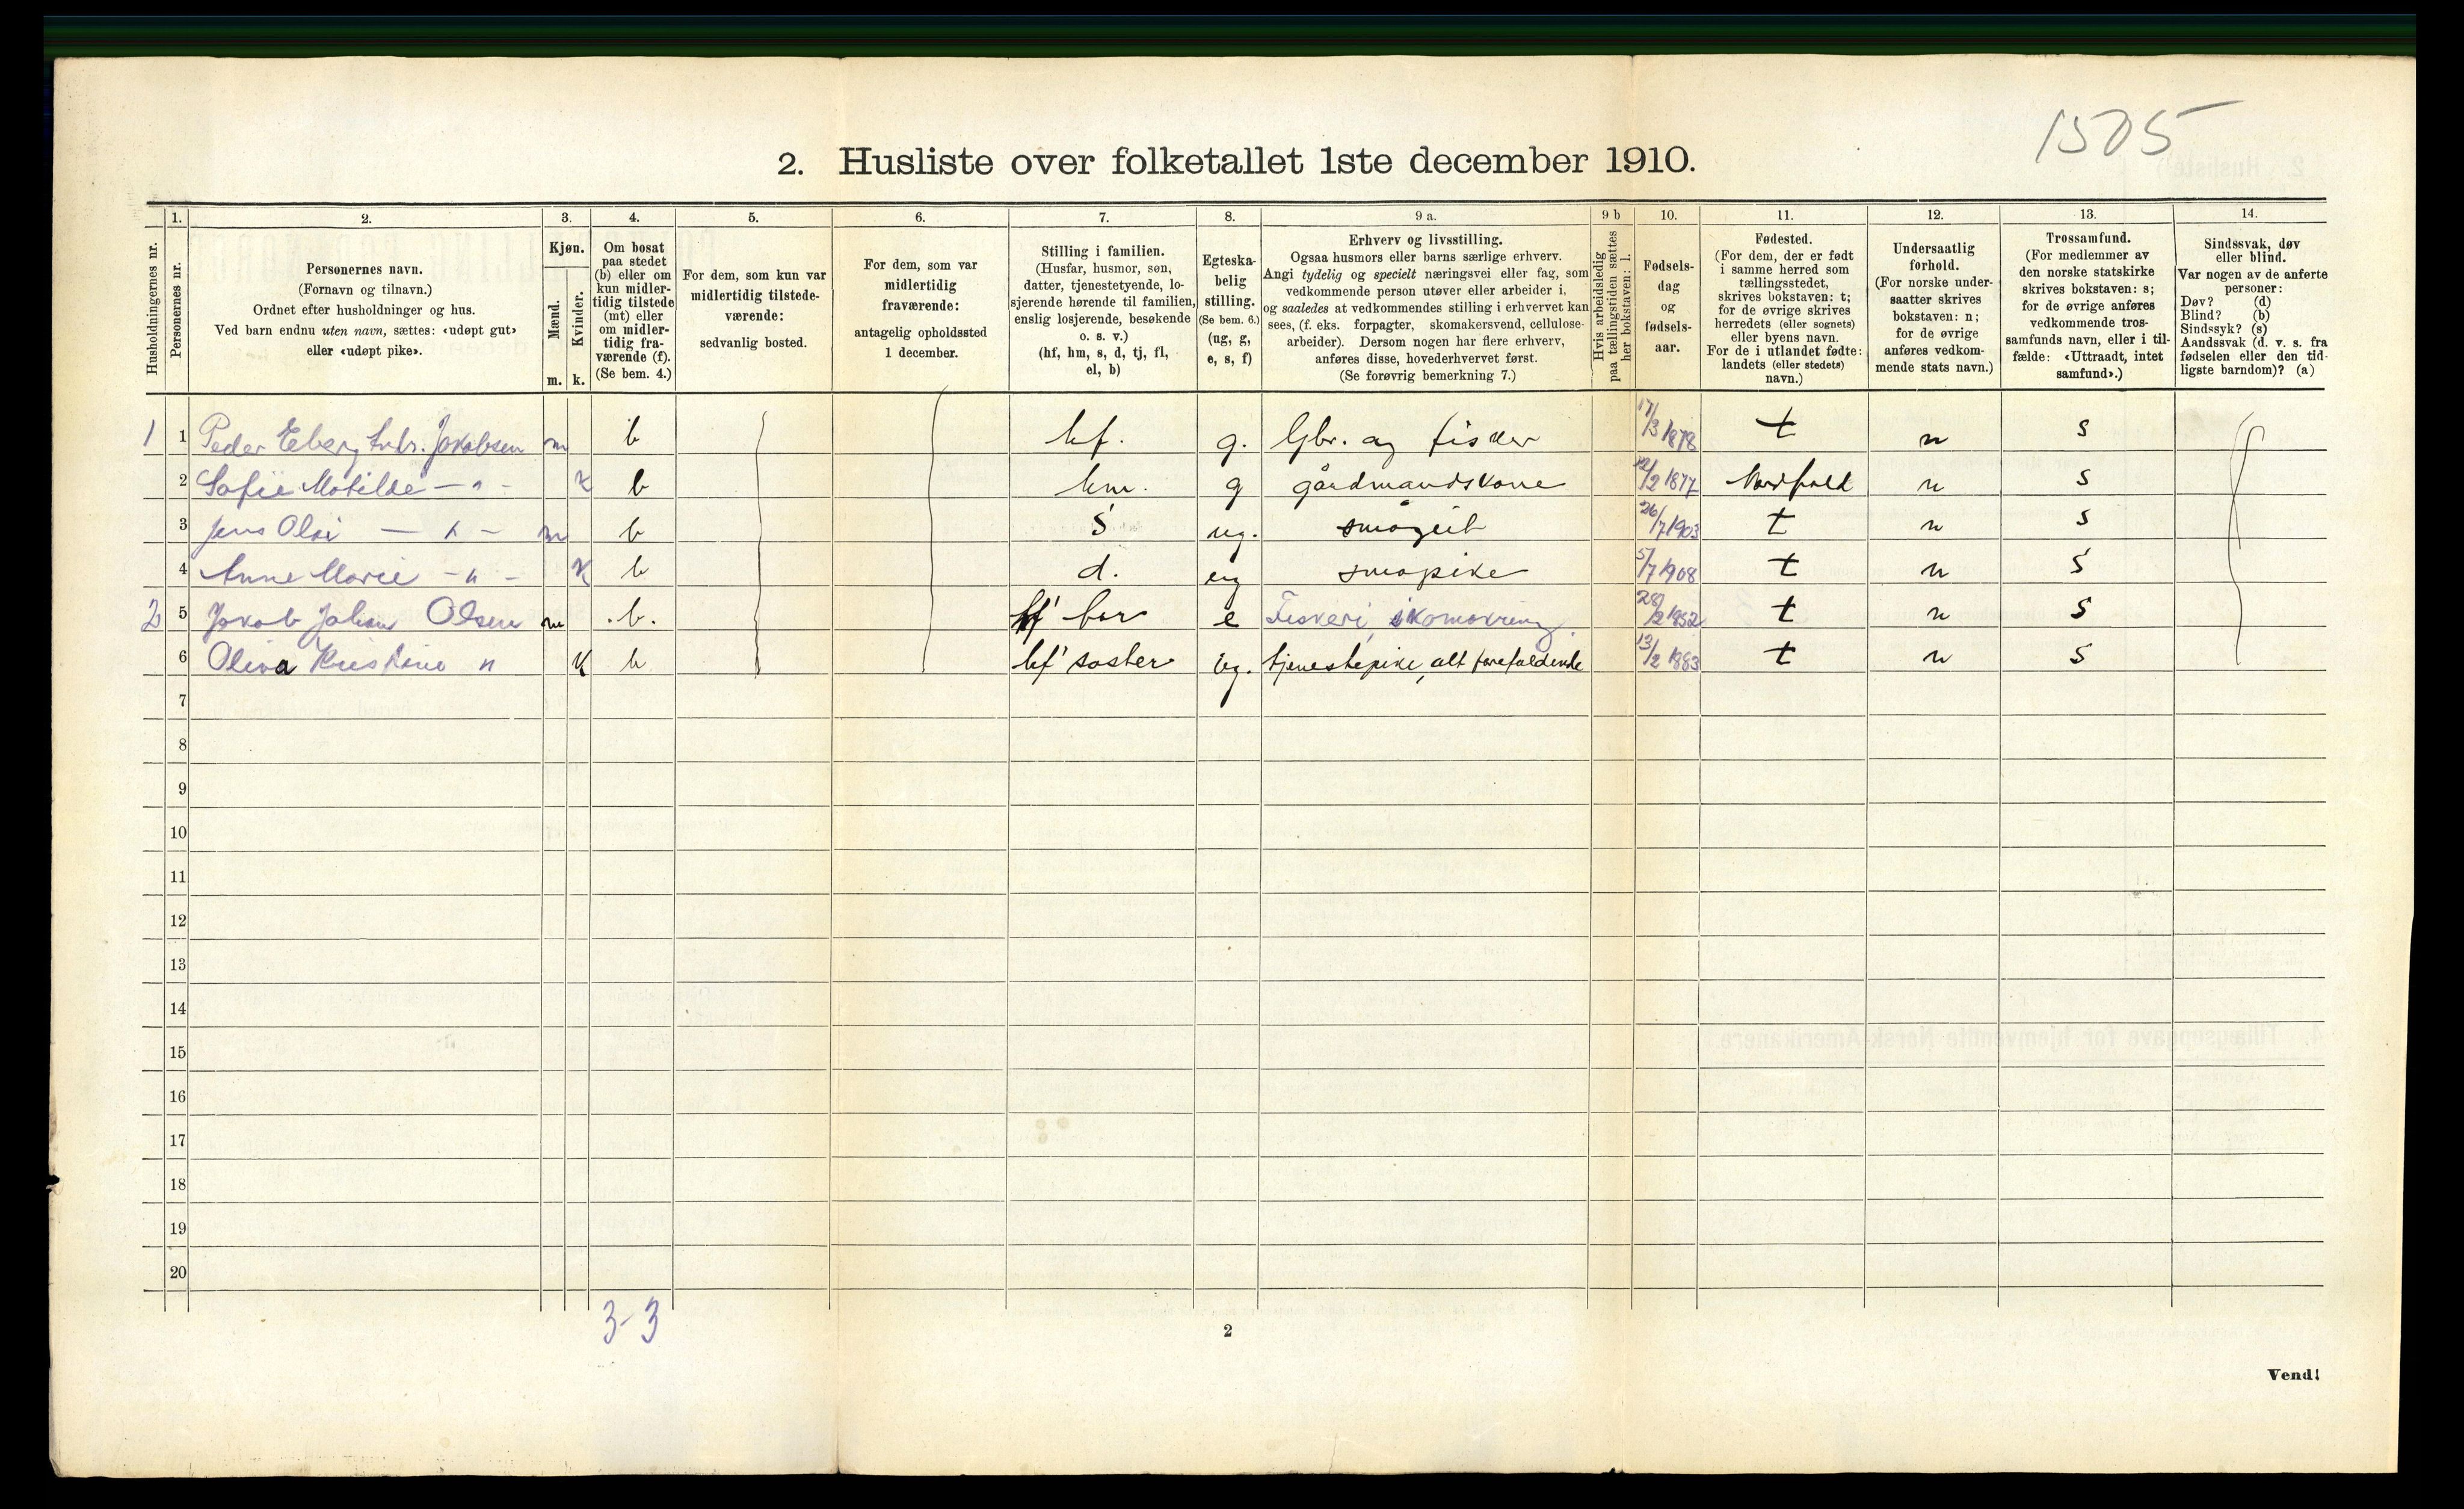 1505
2. Husliste over folketallet 1ste december 1910.
Husholdningernes nr.
1.
Personernes nr.
2.
Personernes navn.
(Fornavn og tilnavn.)
Ordnet efter husholdninger og hus.
Ved barn endnu uten navn, sættes: «udøpt gut»
eller «udøpt pike».
3.
Kjøn.
Mænd.
m.
Kvinder.
k.
4.
Om bosat
paa stedet
(b) eller om
kun midler-
tidig tilstede
(mt) eller
om midler-
tidig fra-
værende (f).
(Se bem. 4.)
5.
For dem, som kun var
midlertidig tilstede-
værende:
sedvanlig bosted.
6.
For dem, som var
midlertidig
fraværende:
antagelig opholdssted
1 december.
7.
Stilling i familien.
(Husfar, husmor, søn,
datter, tjenestetyende, lo-
sjerende hørende til familien,
enslig losjerende, besøkende
o. s. v.)
(hf, hm, s, d, tj, fl,
el, b)
8.
Egteska-
belig
stilling.
(Se bem. 6.)
(ug, g,
e, s, f)
9 a.
Erhverv og livsstilling.
Ogsaa husmors eller barns særlige erhverv.
Angi tydelig og specielt næringsvei eller fag, som
vedkommende person utøver eller arbeider i,
og saaledes at vedkommendes stilling i erhvervet kan
sees, (f. eks. forpagter, skomakersvend, cellulose-
arbeider). Dersom nogen har flere erhverv,
anføres disse, hovederhvervet først.
(Se forøvrig bemerkning 7.)
9 b
Hvis arbeidsledig
paa tællingstiden sættes
her bokstaven: l.
10.
Fødsels-
dag
og
fødsels-
aar.
11.
Fødested.
(For dem, der er født
i samme herred som
tællingsstedet,
skrives bokstaven: t;
for de øvrige skrives
herredets (eller sognets)
eller byens navn.
For de i utlandet fødte:
landets (eller stedets)
navn.)
12.
Undersaatlig
forhold.
(For norske under-
saatter skrives
bokstaven: n;
for de øvrige
anføres vedkom-
mende stats navn.)
13.
Trossamfund.
(For medlemmer av
den norske statskirke
skrives bokstaven: s;
for de øvrige anføres
vedkommende tros-
samfunds navn, eller i til-
fælde: «Uttraadt, intet
samfund».)
14.
Sindssvak, døv
eller blind.
Var nogen av de anførte
personer:
Døv? (d)
Blind? (b)
Sindssyk? (s)
Aandssvak (d. v. s. fra
fødselen eller den tid-
ligste barndom)? (a)
1 1 Peder Jakobsen m b hf. g. Gbr. og fisker 17/3 1878 t n s
2 Sofie Matilde — " - k b hm. g gårdmandskone 12/2 1877 Nordfold n s
3 Jens Olai — " - m b s ug. smågut 26/7 1903 t n s
4 Anne Marie - " - k b d. ug småpike 5/7 1908 t n s
2 5 Jakob Johan Olsen m b. hf' far e Fiskeri, skomakring. 28/2 1852 t n s
6 Oliva Kristine " k b hf' søster ug. tjenestepike, alt forefaldende 13/2 1883 t n s
7
8
9
10
11
12
13
14
15
16
17
18
19
20
3-3
2
Vend!